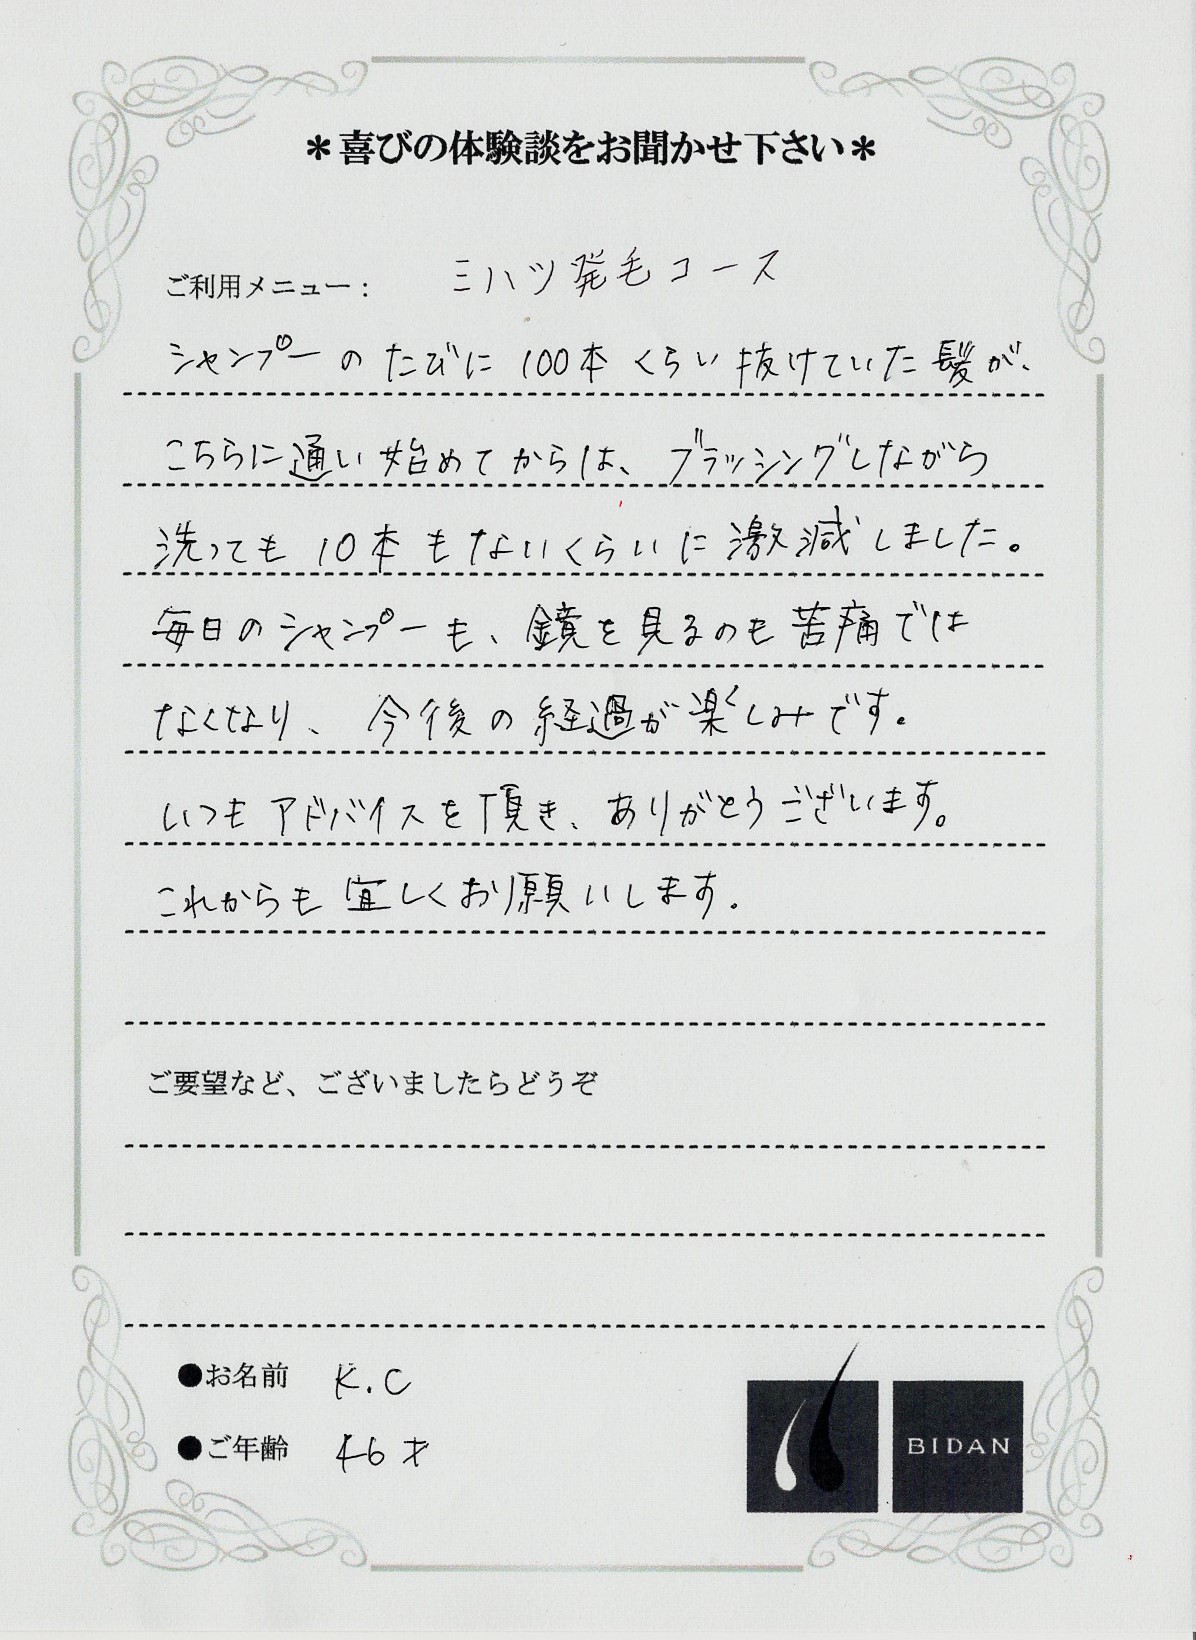 ＊喜びの体験談をお聞かせ下さい＊
ご利用メニュー： ミハツ発毛コース
シャンプーのたびに100本くらい抜けていた髪が、
こちらに通い始めてからは、ブラッシングしながら
洗っても10本もないくらいに激減しました。
毎日のシャンプーも、鏡を見るのも苦痛では
なくなり、今後の経過が楽しみです。
いつもアドバイスを頂き、ありがとうございます。
これからも宜しくお願いします。
ご要望など、ございましたらどうぞ
●お名前 K.C
●ご年齢 46才
BIDAN